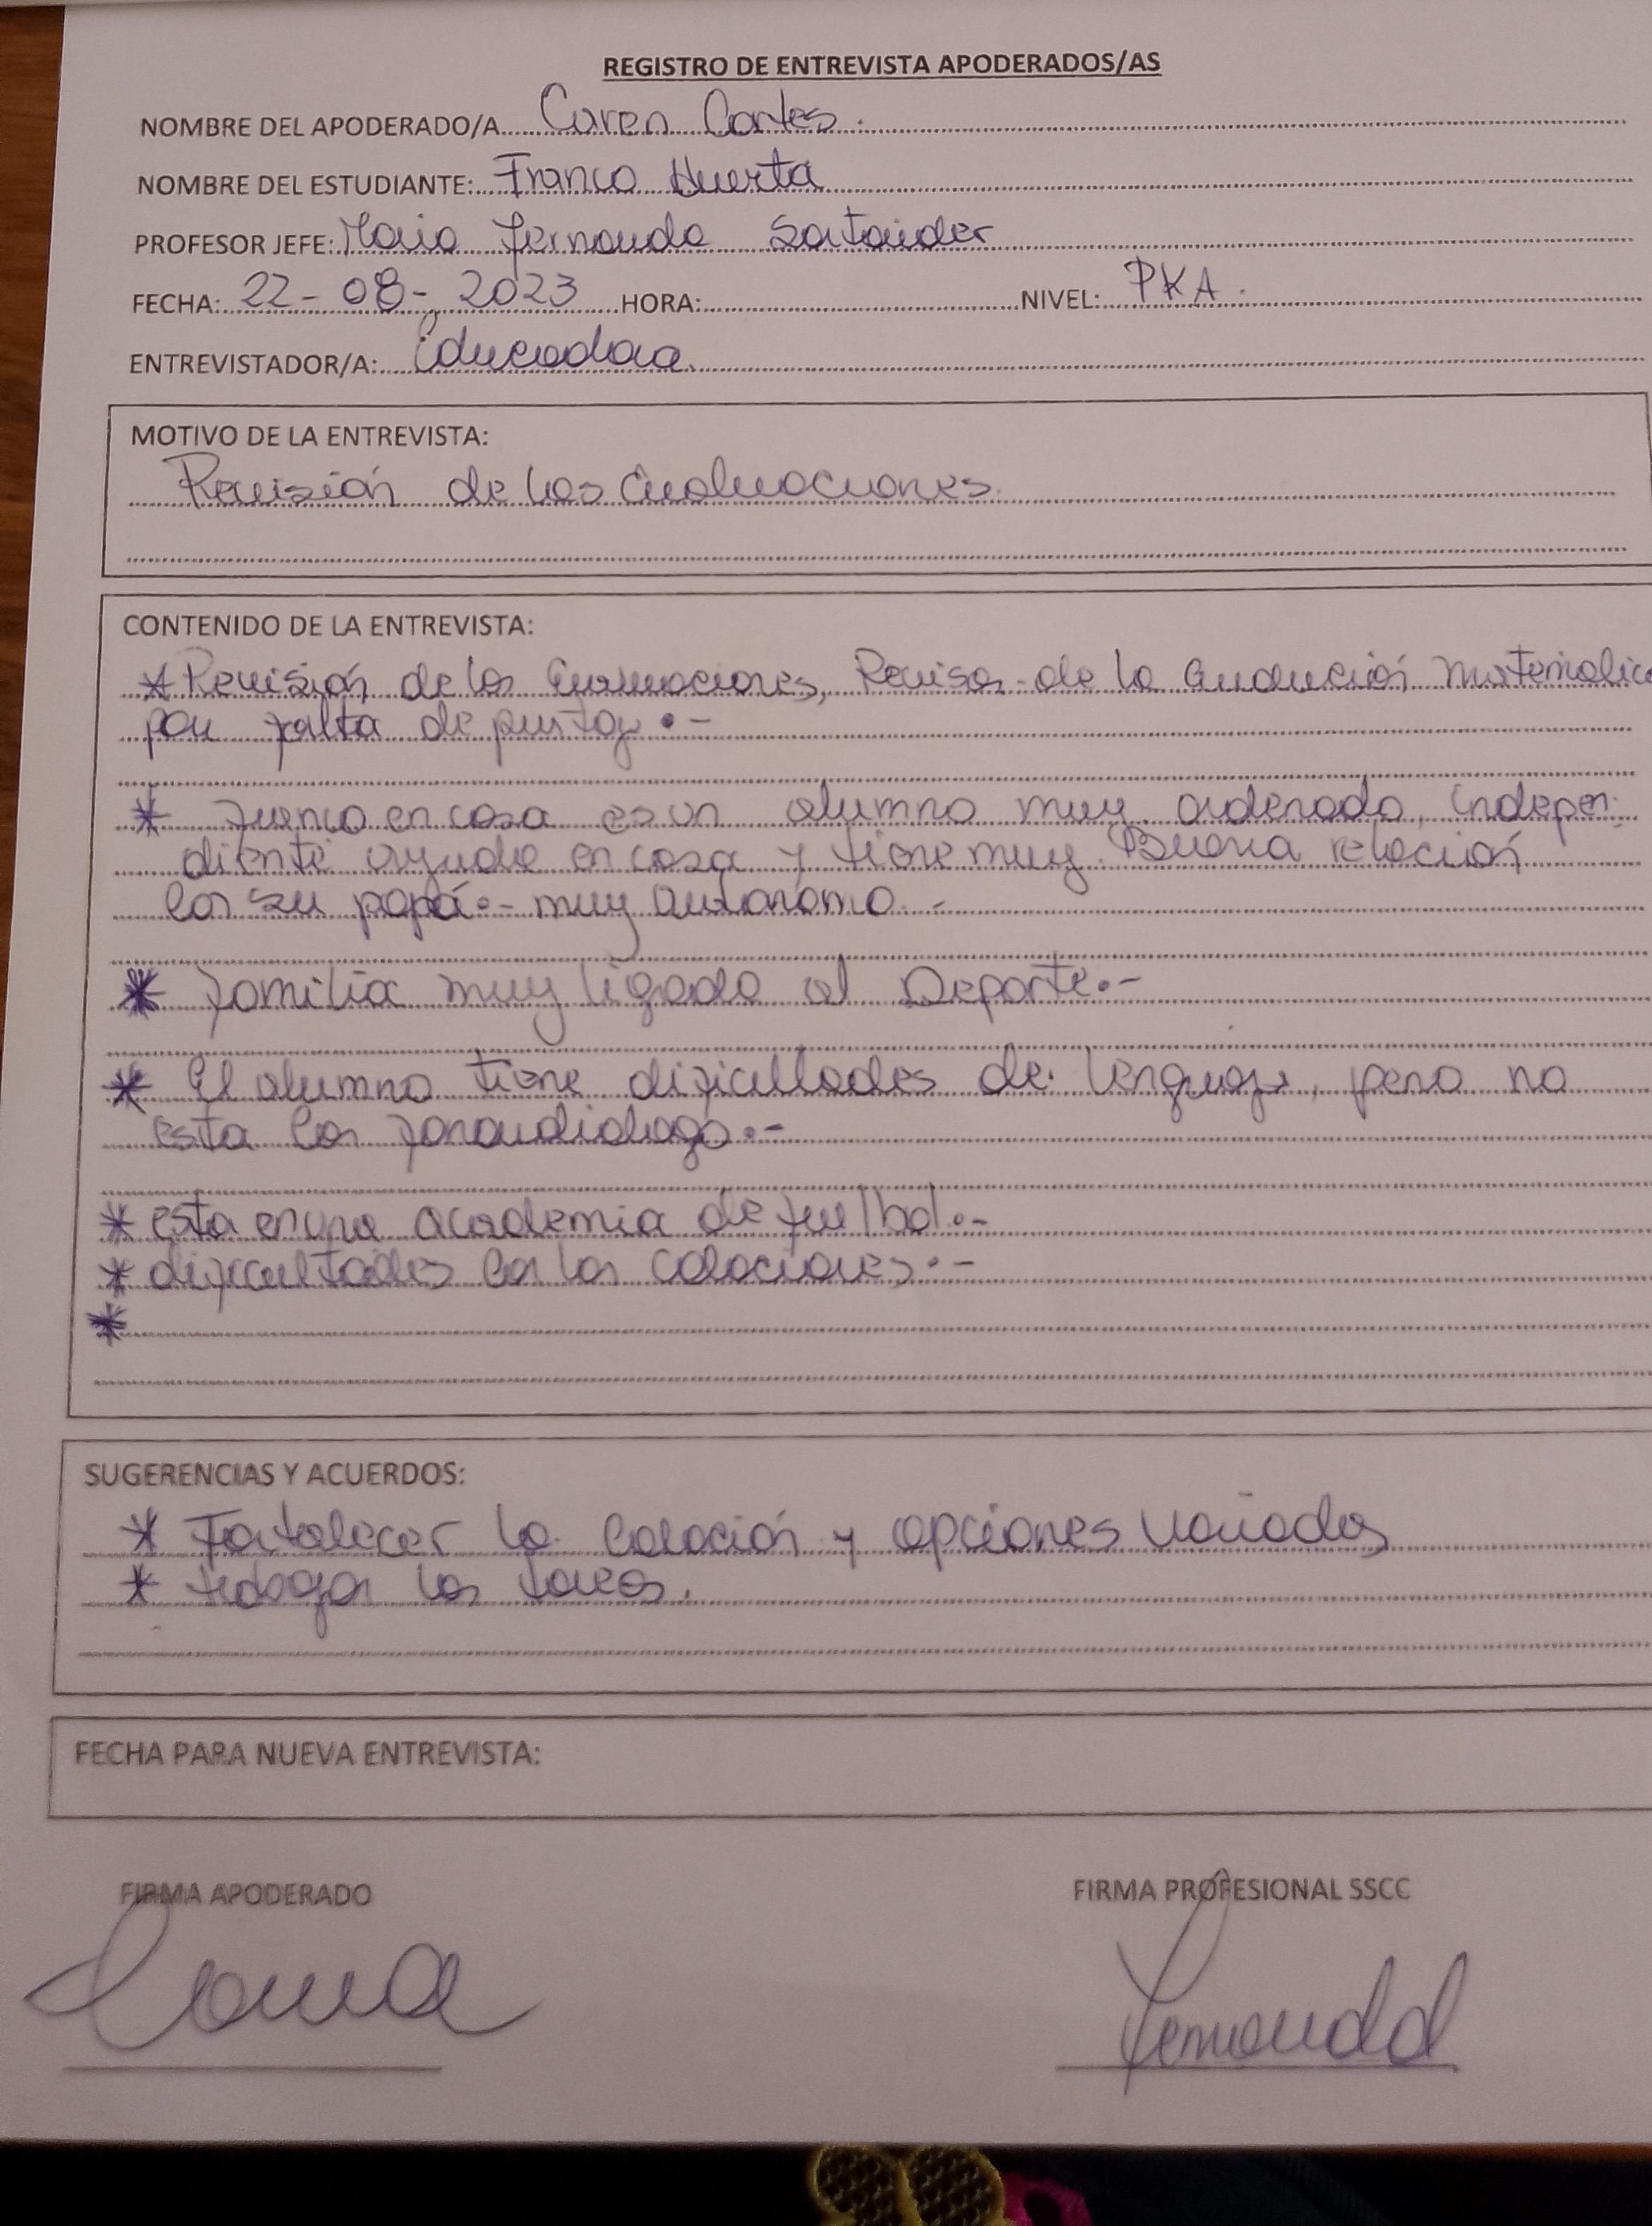 REGISTRO DE ENTREVISTA APODERADOS/AS
NOMBRE DEL APODERADO/A Caren Cortes.
NOMBRE DEL ESTUDIANTE: Franco Huerta
PROFESOR JEFE: Maria Fernanda Santander
FECHA: 22-08-2023 HORA: NIVEL: PKA.
ENTREVISTADOR/A: Educadora.
MOTIVO DE LA ENTREVISTA:
Revisión de las Evaluaciones.
CONTENIDO DE LA ENTREVISTA:
* Revisión de las Evaluaciones, de la Evaluación Matematica
por falta de .-
* Franco en casa es un alumno muy ordenado, indepen-
diente ayuda en casa y tiene muy Buena relación
con su papá.- muy autonomo.-
* Familia muy ligada al Deporte.-
* El alumno tiene dificultades de lenguaje, pero no
esta con fonoudiologo.-
* esta en una academia de futbol.-
* dificultades con las colaciones.-
*
SUGERENCIAS Y ACUERDOS:
* Fortalecer la Colación y opciones Variadas
* las tareas.
FECHA PARA NUEVA ENTREVISTA:
FIRMA APODERADO FIRMA PROFESIONAL SSCC